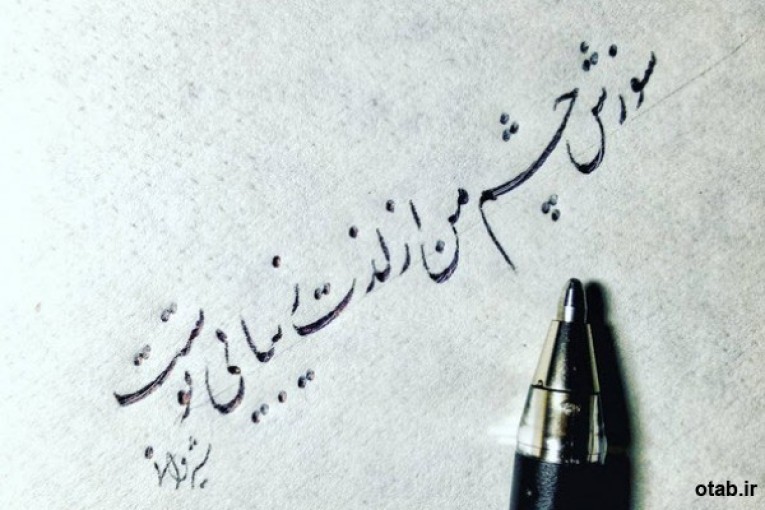 سوزش چشم من از لذت زیبائی توست
otab.ir